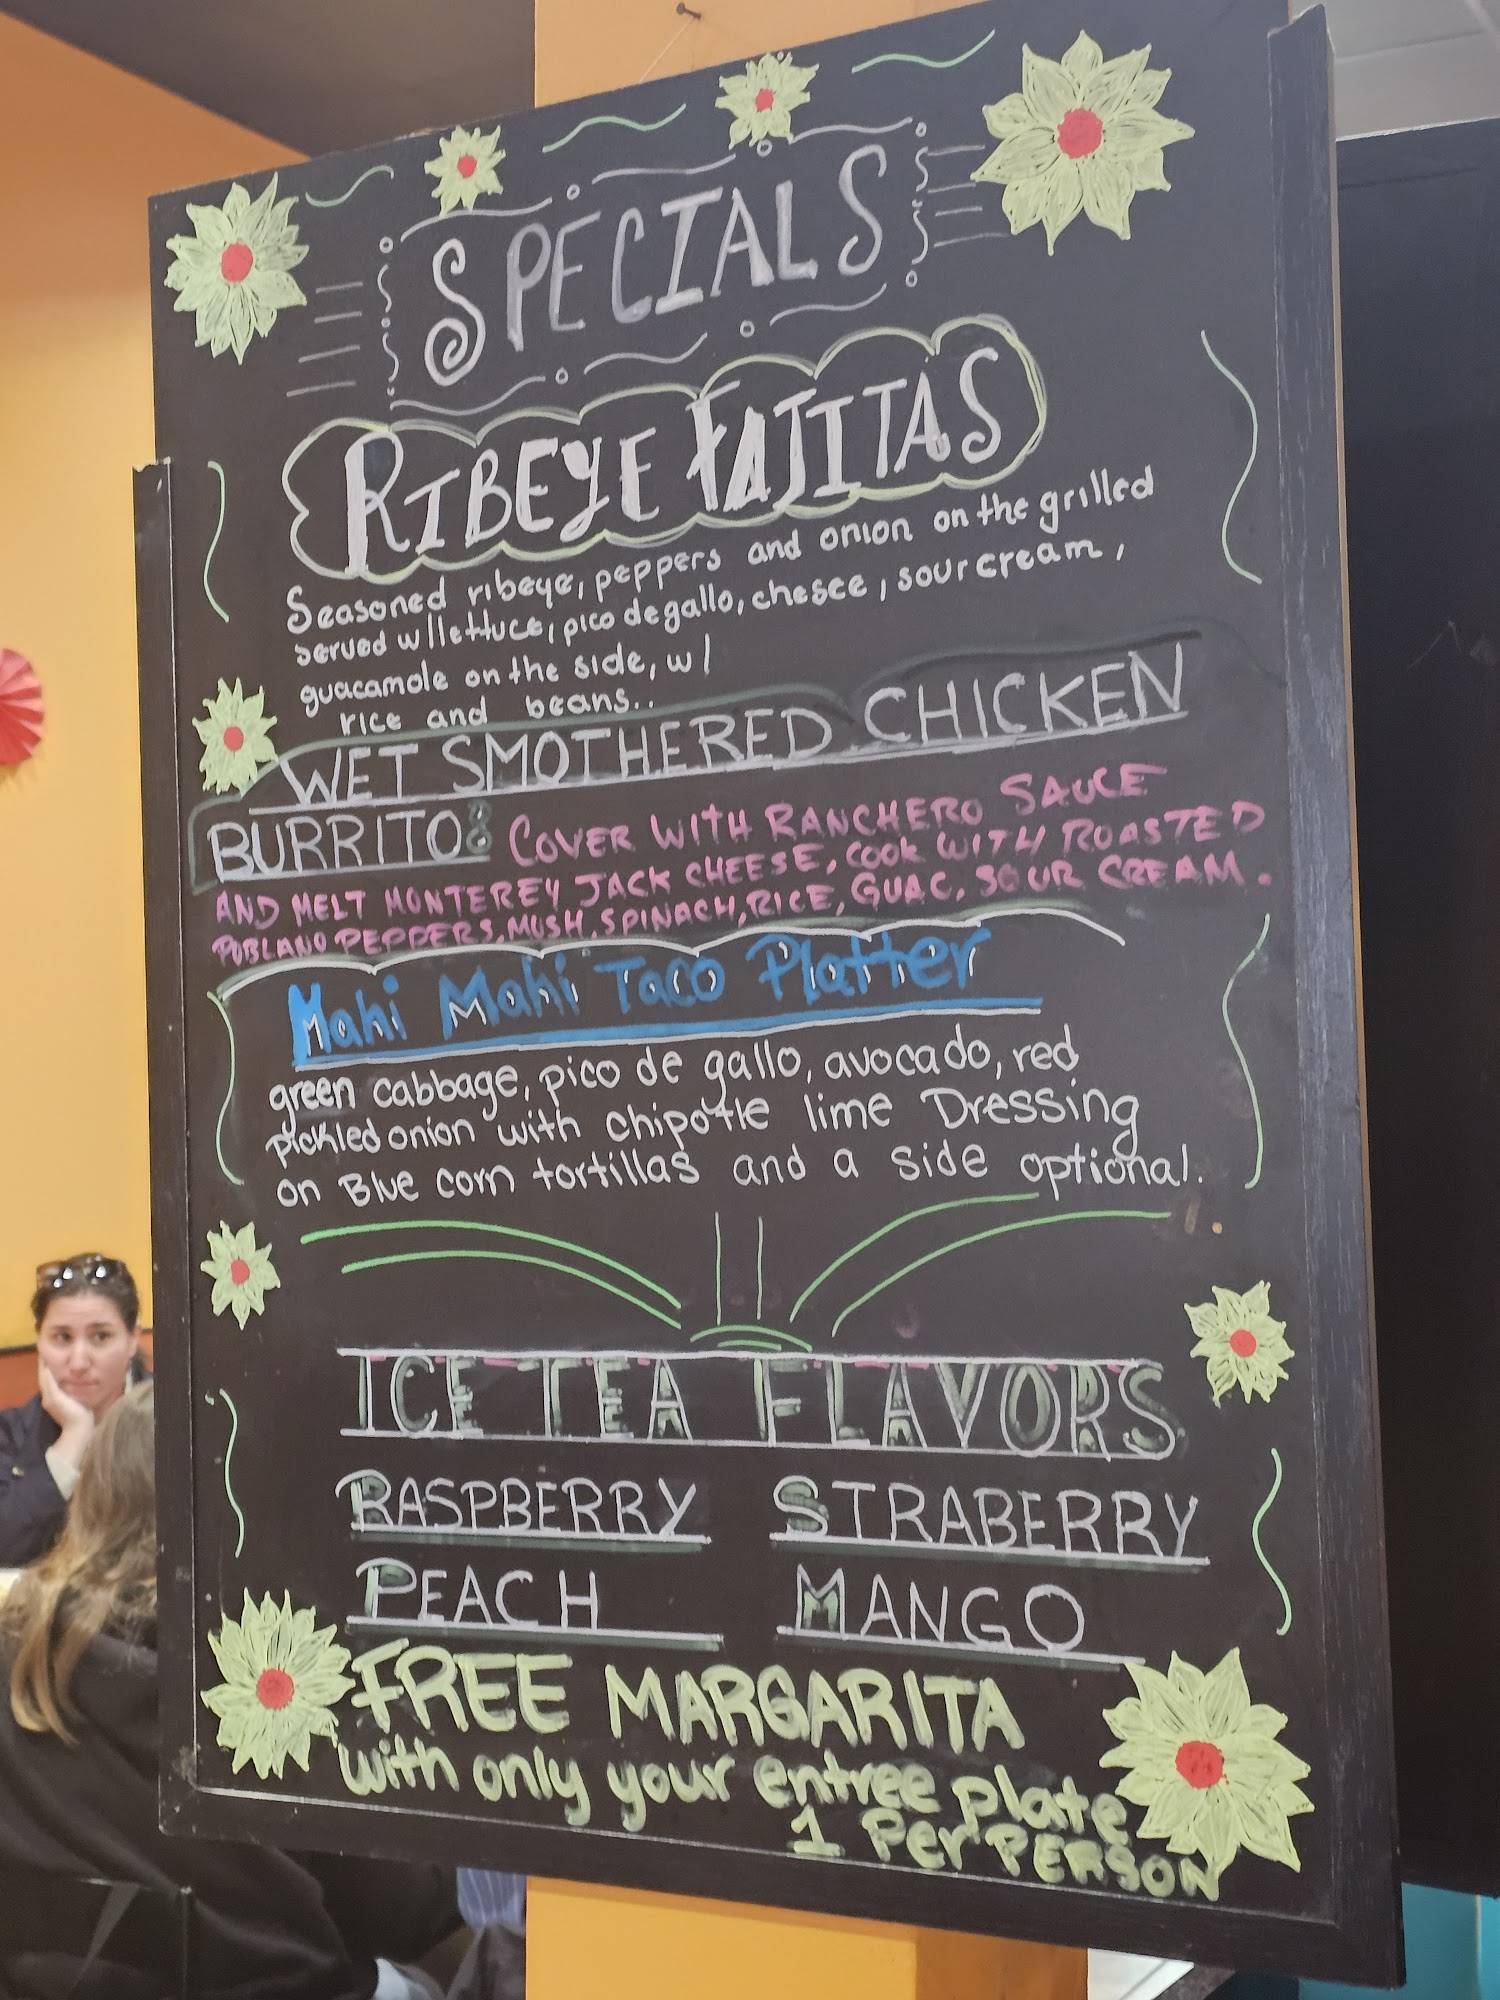 SPECIALS
RIBEYE FAJITAS
Seasoned ribeye, peppers and onion on the grilled
served w/lettuce, pico de gallo, chesee, sour cream,
guacamole on the side, w/
rice and beans..
WET SMOTHERED CHICKEN
BURRITO: COVER WITH RANCHERO SAUCE
AND MELT MONTEREY JACK CHEESE, COOK WITH ROASTED
POBLANO PEPPERS, MUSH, SPINACH, RICE, GUAC, SOUR CREAM.
Mahi Mahi Taco Platter
green cabbage, pico de gallo, avocado, red
pickled onion with chipotle lime Dressing
on Blue corn tortillas and a side optional.
ICE TEA FLAVORS
RASPBERRY STRABERRY
PEACH MANGO
FREE MARGARITA
with only your entree plate
1 Per PERSON